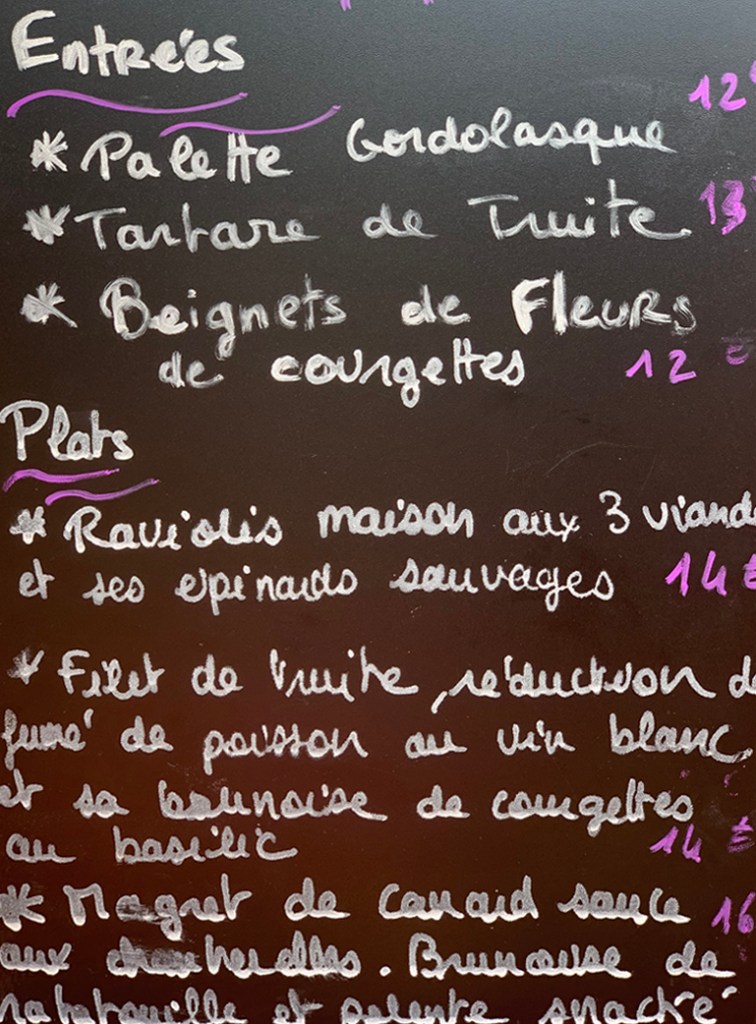 Entrées
12€
* Palette Gordolasque
* Tartare de Truite 13
* Beignets de Fleurs
de courgettes 12 €
Plats
* Raviolis maison aux 3 viand
et ses épinards sauvages 14 €
* Filet de Truite, réduction de
fumé de poisson au vin blanc
et sa brunoise de courgettes
au basilic 14 €
* Magret de canard sauce 16
aux chanterelles. Brunoise de
ratatouille et polente snackée